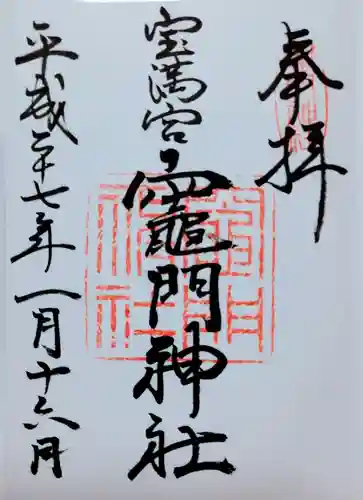 奉拝
宝満宮
竈門神社
平成二十七年一月十六日